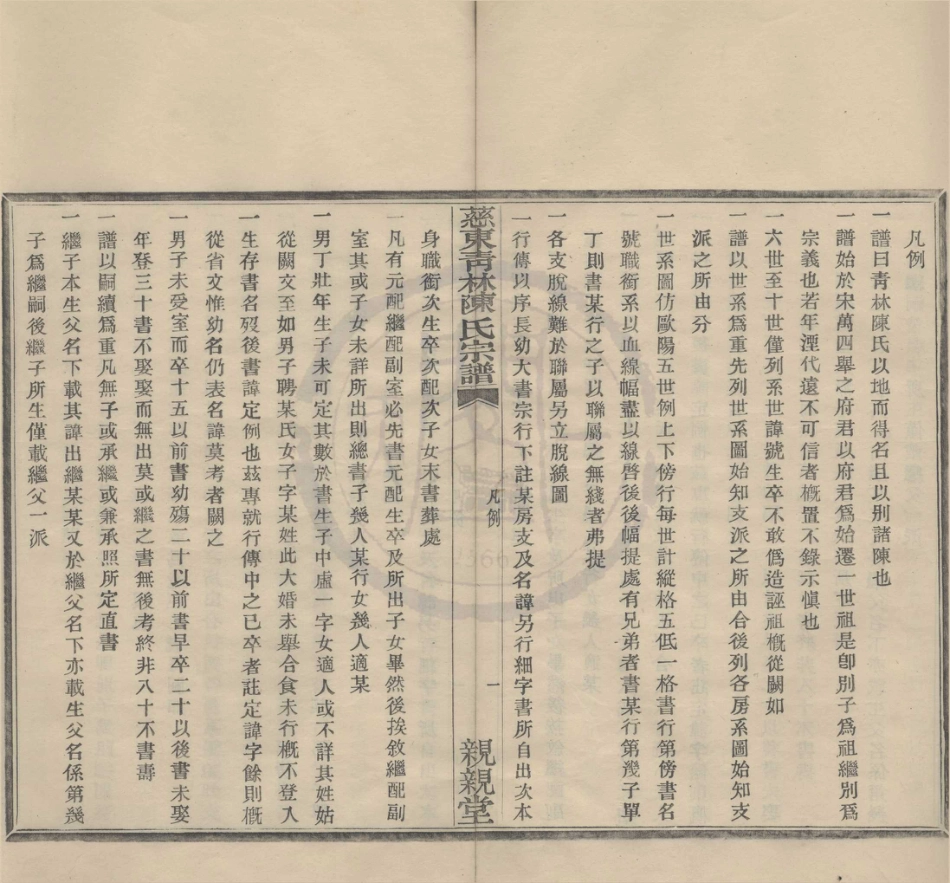 凡例
一譜曰青林陳氏以地而得名且以别諸陳也
一譜始於宋萬四舉之府君以府君爲始遷一世祖是卽別子爲祖繼别爲
宗義也若年湮代遠不可信者槪置不錄示愼也
一六世至十世僅列系世諱號生卒不敢僞造誣祖槪從闕如
一譜以世系爲重先列世系圖始知支派之所由合後列各房系圖始知支
派之所由分
一世系圖仿歐陽五世例上下傍行每世計縱格五低一格書行第傍書名
號職銜系以血線幅盡以線啓後後幅提處有兄弟者書某行第幾子單
丁則書某行之子以聯屬之無綫者弗提
一各支脫線難於聯屬另立脫線圖
一行傳以序長幼大書宗行下註某房支及名諱另行細字書所自出次本
慈東青林陳氏宗譜
凡例
一
親親堂
身職銜次生卒次配次子女末書葬處
一凡有元配繼配副室必先書元配生卒及所出子女畢然後挨敘繼配副
室其或子女未詳所出則總書子幾人某行女幾人適某
一男丁壯年生子未可定其數於生子中虛一字女適人或不詳其姓姑
從闕文至如男子聘某氏女子字某姓此大婚未舉合食未行槪不登入
一生存書名歿後書諱定例也茲專就行傳中之已卒者註定諱字餘則槪
從省文惟幼名仍表名諱莫考者闕之
一男子未受室而卒十五以前書幼殤二十以前書早卒二十以後書未娶
年登三十書不娶娶而無出莫或繼之書無後考終非八十不書壽
一譜以嗣續爲重凡無子或承繼或兼承照所定直書
一繼子本生父名下載其諱出繼某某又於繼父名下亦載生父名係第幾
子爲繼嗣後繼子所生僅載繼父一派